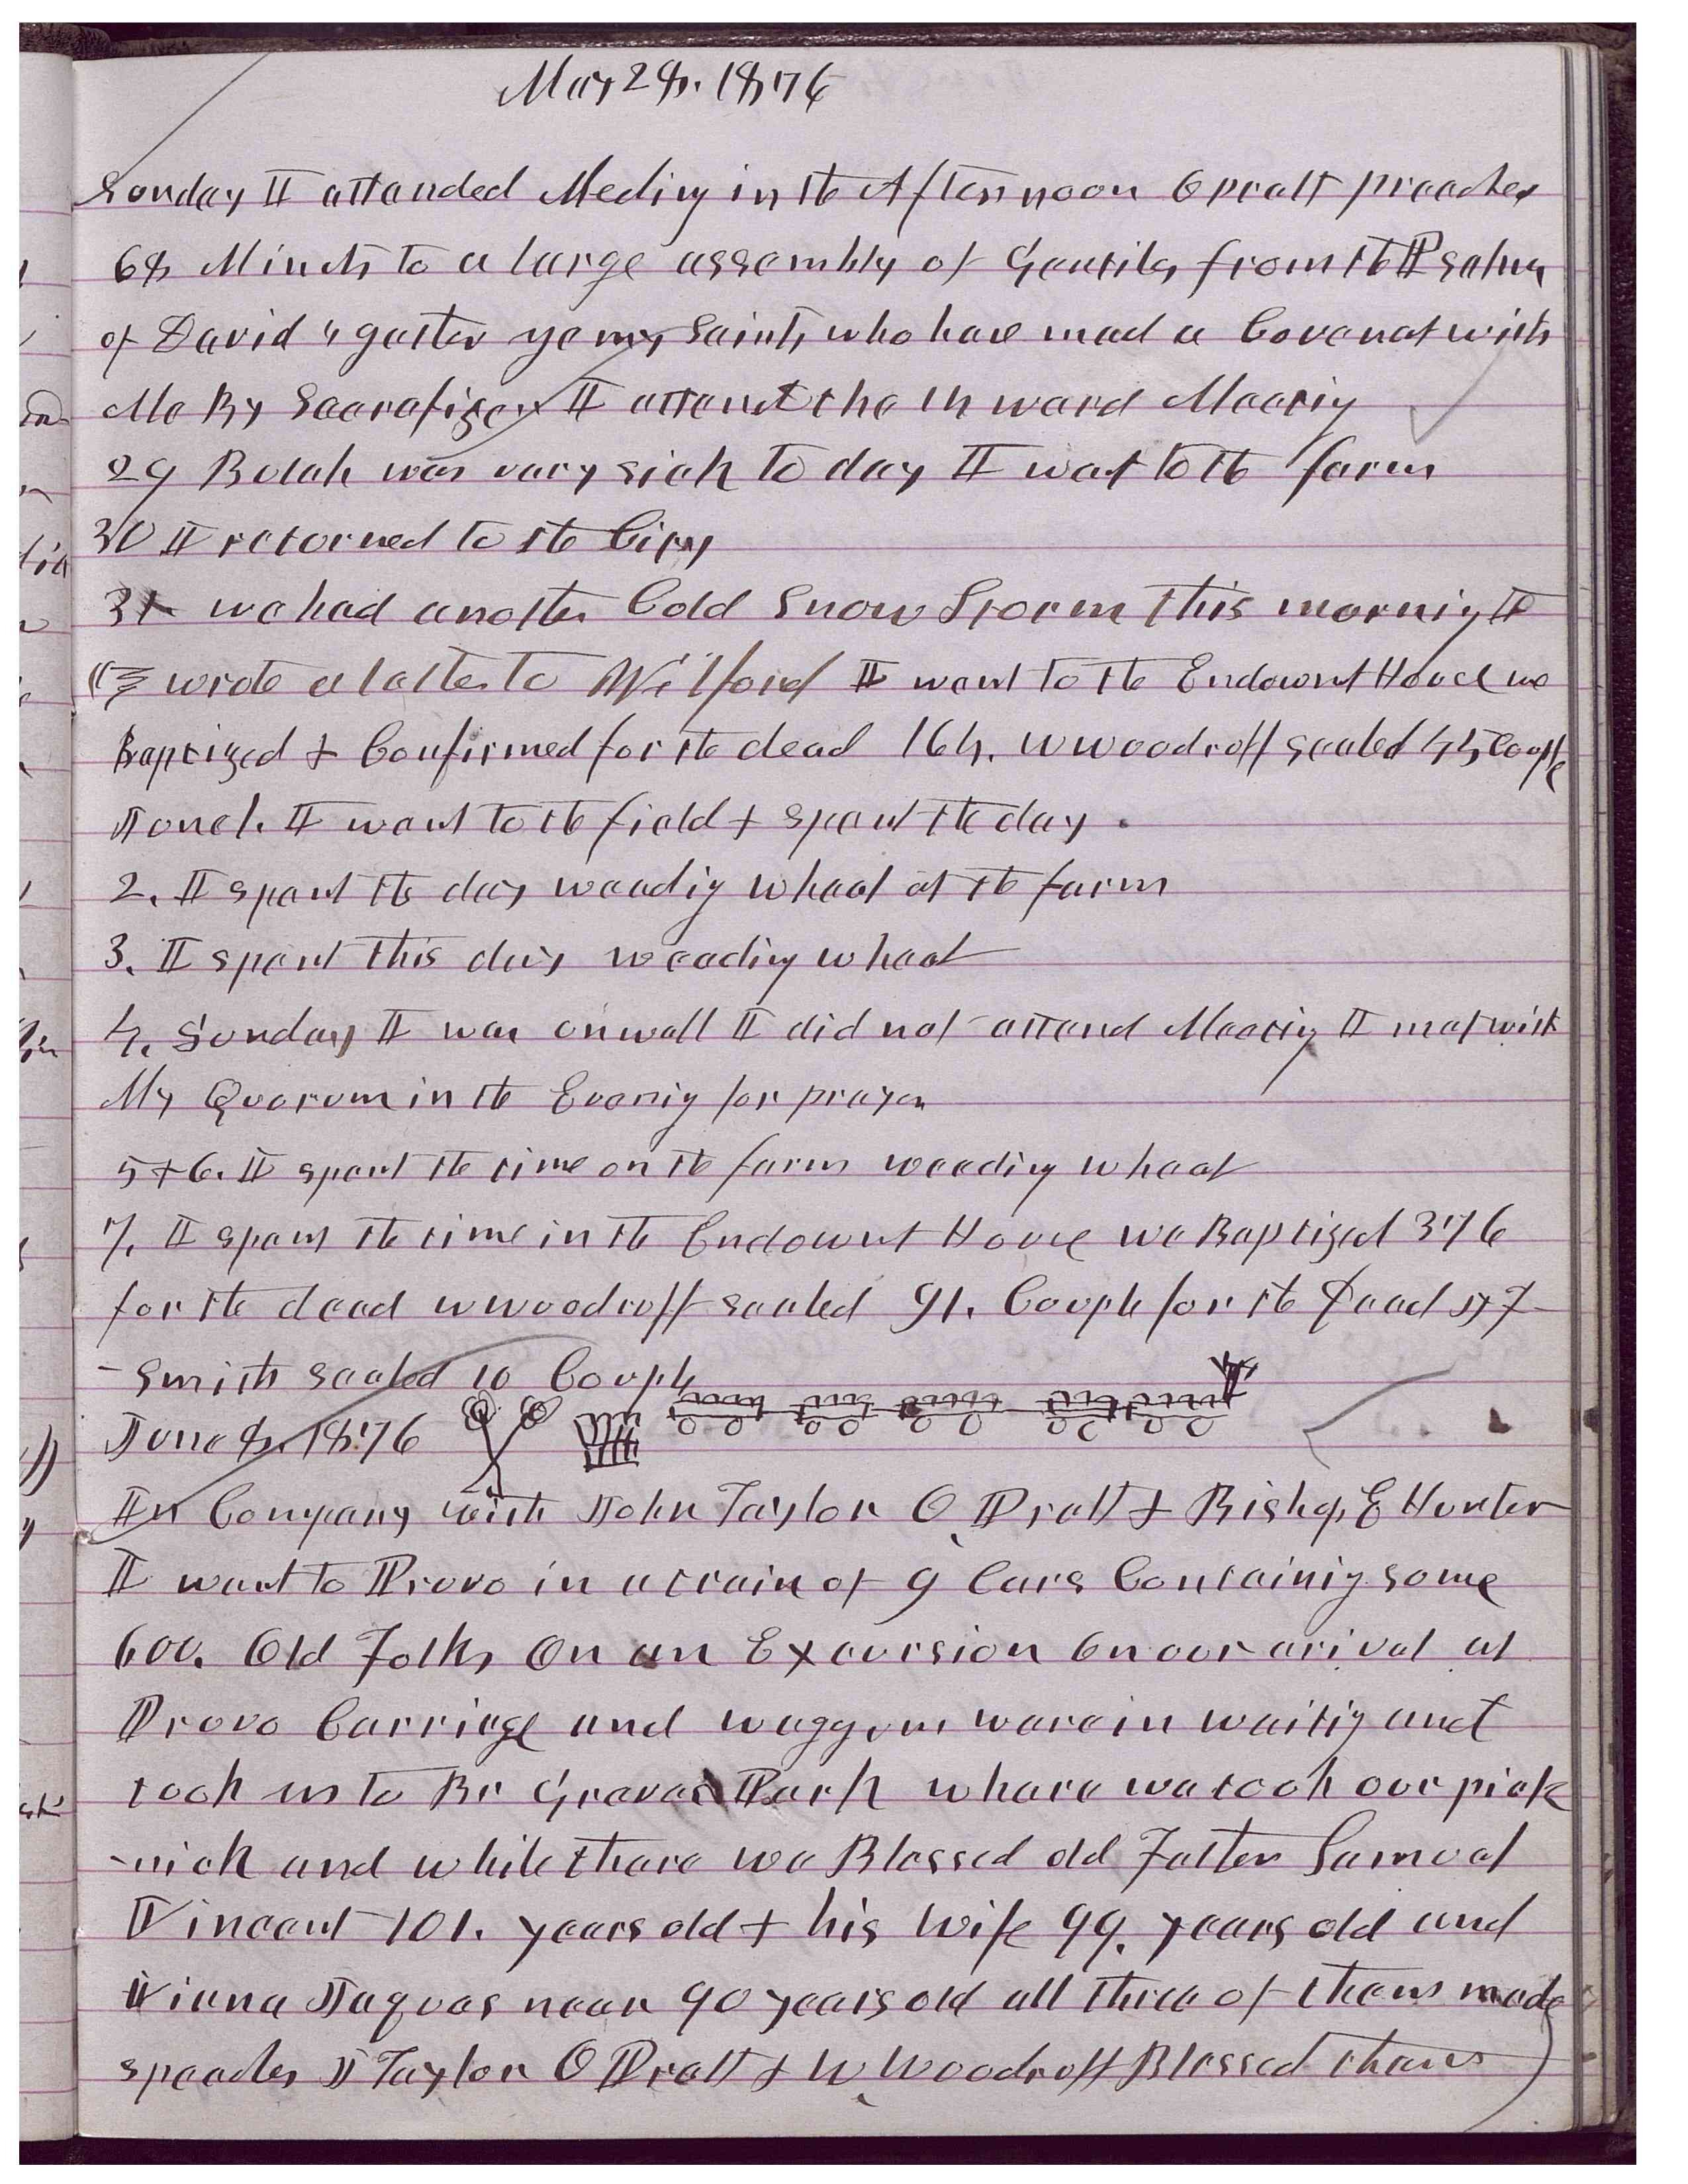 May 28. 1876
Sunday I attended Meeting in the Afternoon O pratt preached
68 Minuts to a large assembly of Gentiles from the Psalms
of David "gather ye my Saints who have mad a Covenat with
Me By Sacrafize" I attend the 14 ward Meeting
29 Bulah was vary sick to day I wat to the farm
30 I returned to the City
31 we had another Cold Snow Storm this morning I
wrote a letter to Wilford I went to the Endowmt House we
Baptized & Confirmed for the dead 164. W woodruff sealed 45 Couple
June 1. I went to the field & spent the day.
2. I spent the day weeding wheat at the farm
3. I spent this day weeding wheat
4. Sunday I was unwell I did not attend Meeting I met with
My Quorum in the Evening for prayer
5 & 6. I spent the time on the farm weeding wheat
7. I spent the time in the Endowmt House we Baptized 376
for the dead W woodruff sealed 91. Couple for the Dead J F
- Smith sealed 10 Couple
June 8. 1876
In Company with John Taylor O. Pratt & Bishop E Hunter
I went to Provo in a train of 9 Cars Containing some
600. Old Folks On an Excursion On our arival at
Provo Carriage and waggons ware in waiting and
took us to Br Graves Park whare we took our pick
-nick and while thare we Blessed old Father Samuel
Vincent 101. years old & his wife 99. years old and
Viena Jaques near 90 years old all three of them made
speeches J Taylor O Pratt & W. Woodruff Blessed them